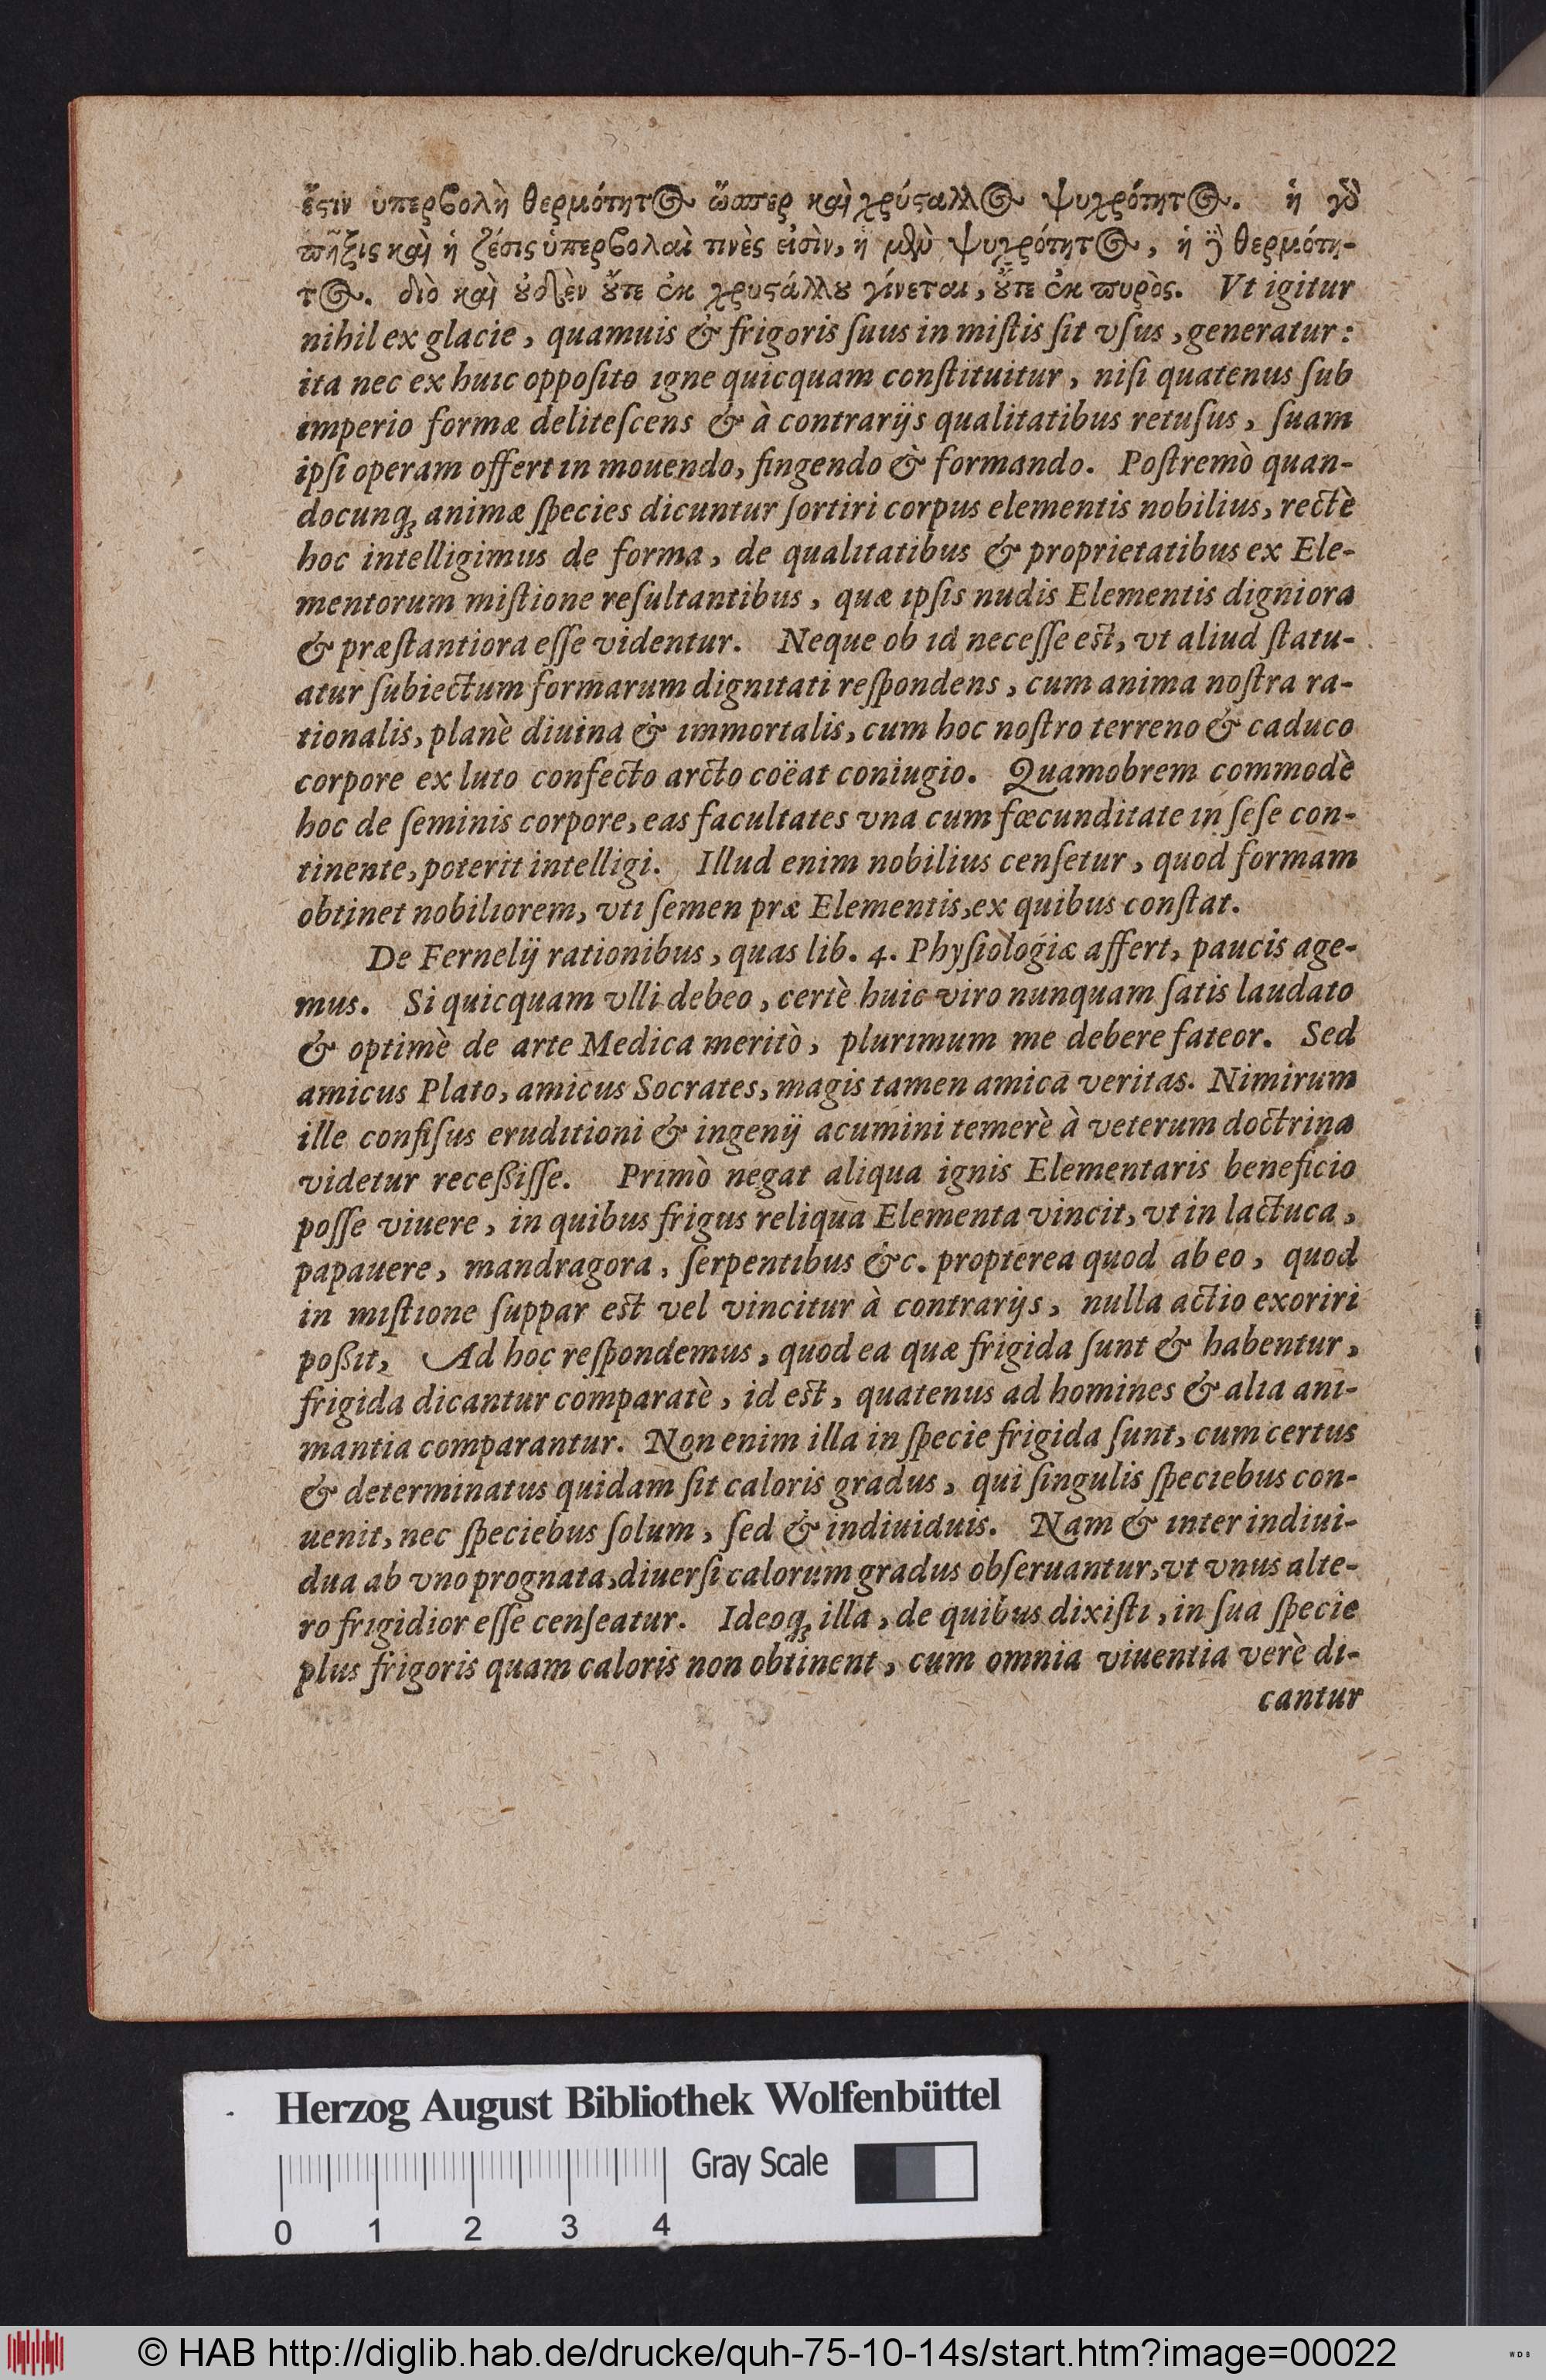 ἔςιν ὑπερϐολὴ θερμότητ῀ο ὥσπερ καὶ χρύςαλλος ψυχρότητος. ἡ γὸ
πῆξις καὶ ἡ ζέσις ὑπερϐολαὶ τινὲς εἰσὶν, ἡ μὲν ψυχρότητος, ἡ δὲ θερμότη-
τος. διὸ καὶ οὐδὲν οὔτε ἐκ χρυςάλλου γίνεται, οὔτε ἐκ πυρὸς. Vt igitur
nihil ex glacie, quamuis & frigoris ſuus in miſtis ſit vſus, generatur:
ita nec ex huic oppoſito igne quicquam conſtituitur, niſi quatenus ſub
imperio formæ deliteſcens & à contrarijs qualitatibus retuſus, ſuam
ipſi operam offert in mouendo, fingendo & formando. Poſtremò quan-
docunq; animæ ſpecies dicuntur ſortiri corpus elementis nobilius, rectè
hoc intelligimus de forma, de qualitatibus & proprietatibus ex Ele-
mentorum miſtione reſultantibus, quæ ipſis nudis Elementis digniora
& præſtantiora eſſe videntur. Neque ob id neceſſe eſt, vt aliud ſtatu-
atur ſubiectum formarum dignitati reſpondens, cum anima noſtra ra-
tionalis, planè diuina & immortalis, cum hoc noſtro terreno & caduco
corpore ex luto confecto arcto coëat coniugio. Quamobrem commodè
hoc de ſeminis corpore, eas facultates vna cum fœcunditate in ſeſe con-
tinente, poterit intelligi. Illud enim nobilius cenſetur, quod formam
obtinet nobiliorem, vti ſemen præ Elementis, ex quibus conſtat.
De Fernelij rationibus, quas lib. 4. Phyſiologiæ affert, paucis age-
mus. Si quicquam vlli debeo, certè huic viro nunquam ſatis laudato
& optimè de arte Medica meritò, plurimum me debere fateor. Sed
amicus Plato, amicus Socrates, magis tamen amica veritas. Nimirum
ille confiſus eruditioni & ingenij acumini temerè à veterum doctrina
videtur receßiſſe. Primò negat aliqua ignis Elementaris beneficio
poſſe viuere, in quibus frigus reliqua Elementa vincit, vt in lactuca,
papauere, mandragora, ſerpentibus &c. propterea quod ab eo, quod
in miſtione ſuppar eſt vel vincitur à contrarijs, nulla actio exoriri
poßit, Ad hoc reſpondemus, quod ea quæ frigida ſunt & habentur,
frigida dicantur comparatè, id eſt, quatenus ad homines & alia ani-
mantia comparantur. Non enim illa in ſpecie frigida ſunt, cum certus
& determinatus quidam ſit caloris gradus, qui ſingulis ſpeciebus con-
uenit, nec ſpeciebus ſolum, ſed & indiuiduis. Nam & inter indiui-
dua ab vno prognata, diuerſi calorum gradus obſeruantur, vt vnus alte-
ro frigidior eſſe cenſeatur. Ideoq; illa, de quibus dixiſti, in ſua ſpecie
plus frigoris quam caloris non obtinent, cum omnia viuentia verè di-
cantur
Herzog August Bibliothek Wolfenbüttel
Gray Scale
0 1 2 3 4
© HAB http://diglib.hab.de/drucke/quh-75-10-14s/start.htm?image=00022
WDB